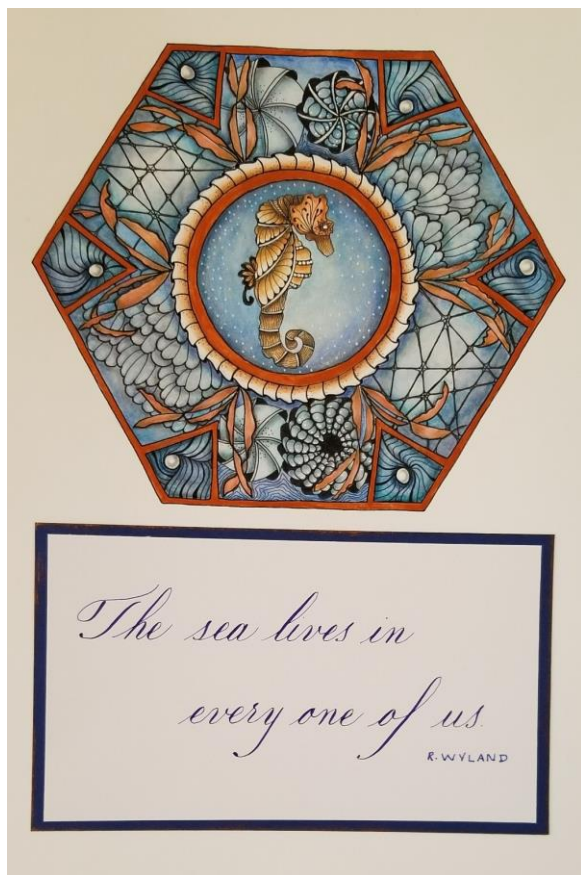 The sea lives in
every one of us.
R. WYLAND